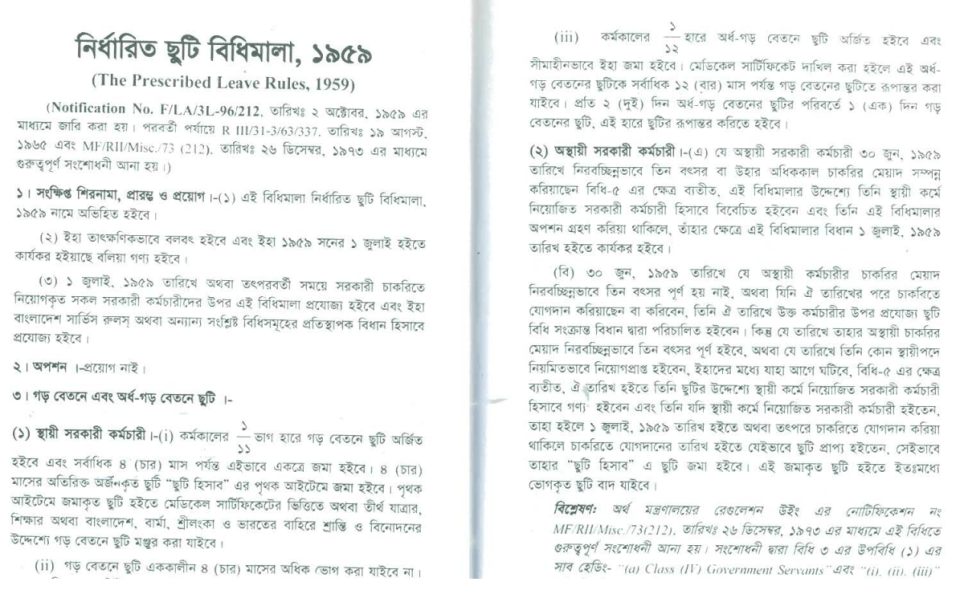 নির্ধারিত ছুটি বিধিমালা, ১৯৫৯
(The Prescribed Leave Rules, 1959)
(Notification No. F/LA/3L-96/212, তারিখঃ ২ অক্টোবর, ১৯৫৯ এর
মাধ্যমে জারি করা হয়। পরবর্তী পর্যায়ে R III/31-3/63/337, তারিখঃ ১৯ আগস্ট,
১৯৬৫ এবং MF/RII/Misc./73 (212), তারিখঃ ২৬ ডিসেম্বর, ১৯৭৩ এর মাধ্যমে
গুরুত্বপূর্ণ সংশোধনী আনা হয়।)
১। সংক্ষিপ্ত শিরনামা, প্রারম্ভ ও প্রয়োগ।-(১) এই বিধিমালা নির্ধারিত ছুটি বিধিমালা,
১৯৫৯ নামে অভিহিত হইবে।
(২) ইহা তাৎক্ষণিকভাবে বলবৎ হইবে এবং ইহা ১৯৫৯ সনের ১ জুলাই হইতে
কার্যকর হইয়াছে বলিয়া গণ্য হইবে।
(৩) ১ জুলাই, ১৯৫৯ তারিখে অথবা তৎপরবর্তী সময়ে সরকারী চাকরিতে
নিয়োগকৃত সকল সরকারী কর্মচারীদের উপর এই বিধিমালা প্রযোজ্য হইবে এবং ইহা
বাংলাদেশ সার্ভিস রুলস্ অথবা অন্যান্য সংশ্লিষ্ট বিধিসমূহের প্রতিস্থাপক বিধান হিসাবে
প্রযোজ্য হইবে।
২। অপশন।-প্রয়োগ নাই।
৩। গড় বেতনে এবং অর্ধ-গড় বেতনে ছুটি।-
(১) স্থায়ী সরকারী কর্মচারী।-(i) কর্মকালের ১/১১ ভাগ হারে গড় বেতনে ছুটি অর্জিত
হইবে এবং সর্বাধিক ৪ (চার) মাস পর্যন্ত এইভাবে একত্রে জমা হইবে। ৪ (চার)
মাসের অতিরিক্ত অর্জনকৃত ছুটি "ছুটি হিসাব" এর পৃথক আইটেমে জমা হইবে। পৃথক
আইটেমে জমাকৃত ছুটি হইতে মেডিকেল সার্টিফিকেটের ভিত্তিতে অথবা তীর্থ যাত্রার,
শিক্ষার অথবা বাংলাদেশ, বার্মা, শ্রীলংকা ও ভারতের বাহিরে শ্রান্তি ও বিনোদনের
উদ্দেশ্যে গড় বেতনে ছুটি মঞ্জুর করা যাইবে।
(ii) গড় বেতনে ছুটি এককালীন ৪ (চার) মাসের অধিক ভোগ করা যাইবে না।
(iii) কর্মকালের ১/১২ হারে অর্ধ-গড় বেতনে ছুটি অর্জিত হইবে এবং
সীমাহীনভাবে ইহা জমা হইবে। মেডিকেল সার্টিফিকেট দাখিল করা হইলে এই অর্ধ-
গড় বেতনের ছুটিকে সর্বাধিক ১২ (বার) মাস পর্যন্ত গড় বেতনের ছুটিতে রূপান্তর করা
যাইবে। প্রতি ২ (দুই) দিন অর্ধ-গড় বেতনের ছুটির পরিবর্তে ১ (এক) দিন গড়
বেতনের ছুটি, এই হারে ছুটির রূপান্তর করিতে হইবে।
(২) অস্থায়ী সরকারী কর্মচারী।-(এ) যে অস্থায়ী সরকারী কর্মচারী ৩০ জুন, ১৯৫৯
তারিখে নিরবচ্ছিন্নভাবে তিন বৎসর বা উহার অধিককাল চাকরির মেয়াদ সম্পন্ন
করিয়াছেন বিধি-৫ এর ক্ষেত্র ব্যতীত, এই বিধিমালার উদ্দেশ্যে তিনি স্থায়ী কর্মে
নিয়োজিত সরকারী কর্মচারী হিসাবে বিবেচিত হইবেন এবং তিনি এই বিধিমালার
অপশন গ্রহণ করিয়া থাকিলে, তাঁহার ক্ষেত্রে এই বিধিমালার বিধান ১ জুলাই, ১৯৫৯
তারিখ হইতে কার্যকর হইবে।
(বি) ৩০ জুন, ১৯৫৯ তারিখে যে অস্থায়ী সরকারী কর্মচারীর চাকরির মেয়াদ
নিরবচ্ছিন্নভাবে তিন বৎসর পূর্ণ হয় নাই, অথবা যিনি ঐ তারিখের পরে চাকরিতে
যোগদান করিয়াছেন বা করিবেন, তিনি ঐ তারিখে উক্ত কর্মচারীর উপর প্রযোজ্য ছুটি
বিধি সংক্রান্ত বিধান দ্বারা পরিচালিত হইবেন। কিন্তু যে তারিখে তাহার অস্থায়ী চাকরির
মেয়াদ নিরবচ্ছিন্নভাবে তিন বৎসর পূর্ণ হইবে, অথবা যে তারিখে তিনি কোন স্থায়ীপদে
নিয়মিতভাবে নিয়োগপ্রাপ্ত হইবেন, ইহাদের মধ্যে যাহা আগে ঘটিবে, বিধি-৫ এর ক্ষেত্র
ব্যতীত, ঐ তারিখ হইতে তিনি ছুটির উদ্দেশ্যে স্থায়ী কর্মে নিয়োজিত সরকারী কর্মচারী
হিসাবে গণ্য হইবেন এবং তিনি যদি স্থায়ী কর্মে নিয়োজিত সরকারী কর্মচারী হইতেন,
তাহা হইলে ১ জুলাই, ১৯৫৯ তারিখ হইতে অথবা তৎপরে চাকরিতে যোগদান করিয়া
থাকিলে চাকরিতে যোগদানের তারিখ হইতে যেইভাবে ছুটি প্রাপ্য হইতেন, সেইভাবে
তাহার "ছুটি হিসাব" এ ছুটি জমা হইবে। এই জমাকৃত ছুটি হইতে ইতঃমধ্যে
ভোগকৃত ছুটি বাদ যাইবে।
বিশ্লেষণ: অর্থ মন্ত্রণালয়ের রেগুলেশন উইং এর নোটিফিকেশন নং
MF/RII/Misc./73(212), তারিখঃ ২৬ ডিসেম্বর, ১৯৭৩ এর মাধ্যমে এই বিধিতে
গুরুত্বপূর্ণ সংশোধনী আনা হয়। সংশোধনী দ্বারা বিধি ৩ এর উপবিধি (১) এর
সাব হেডিং- "(a) Class (IV) Government Servants" এবং "(i), (ii), (iii)"